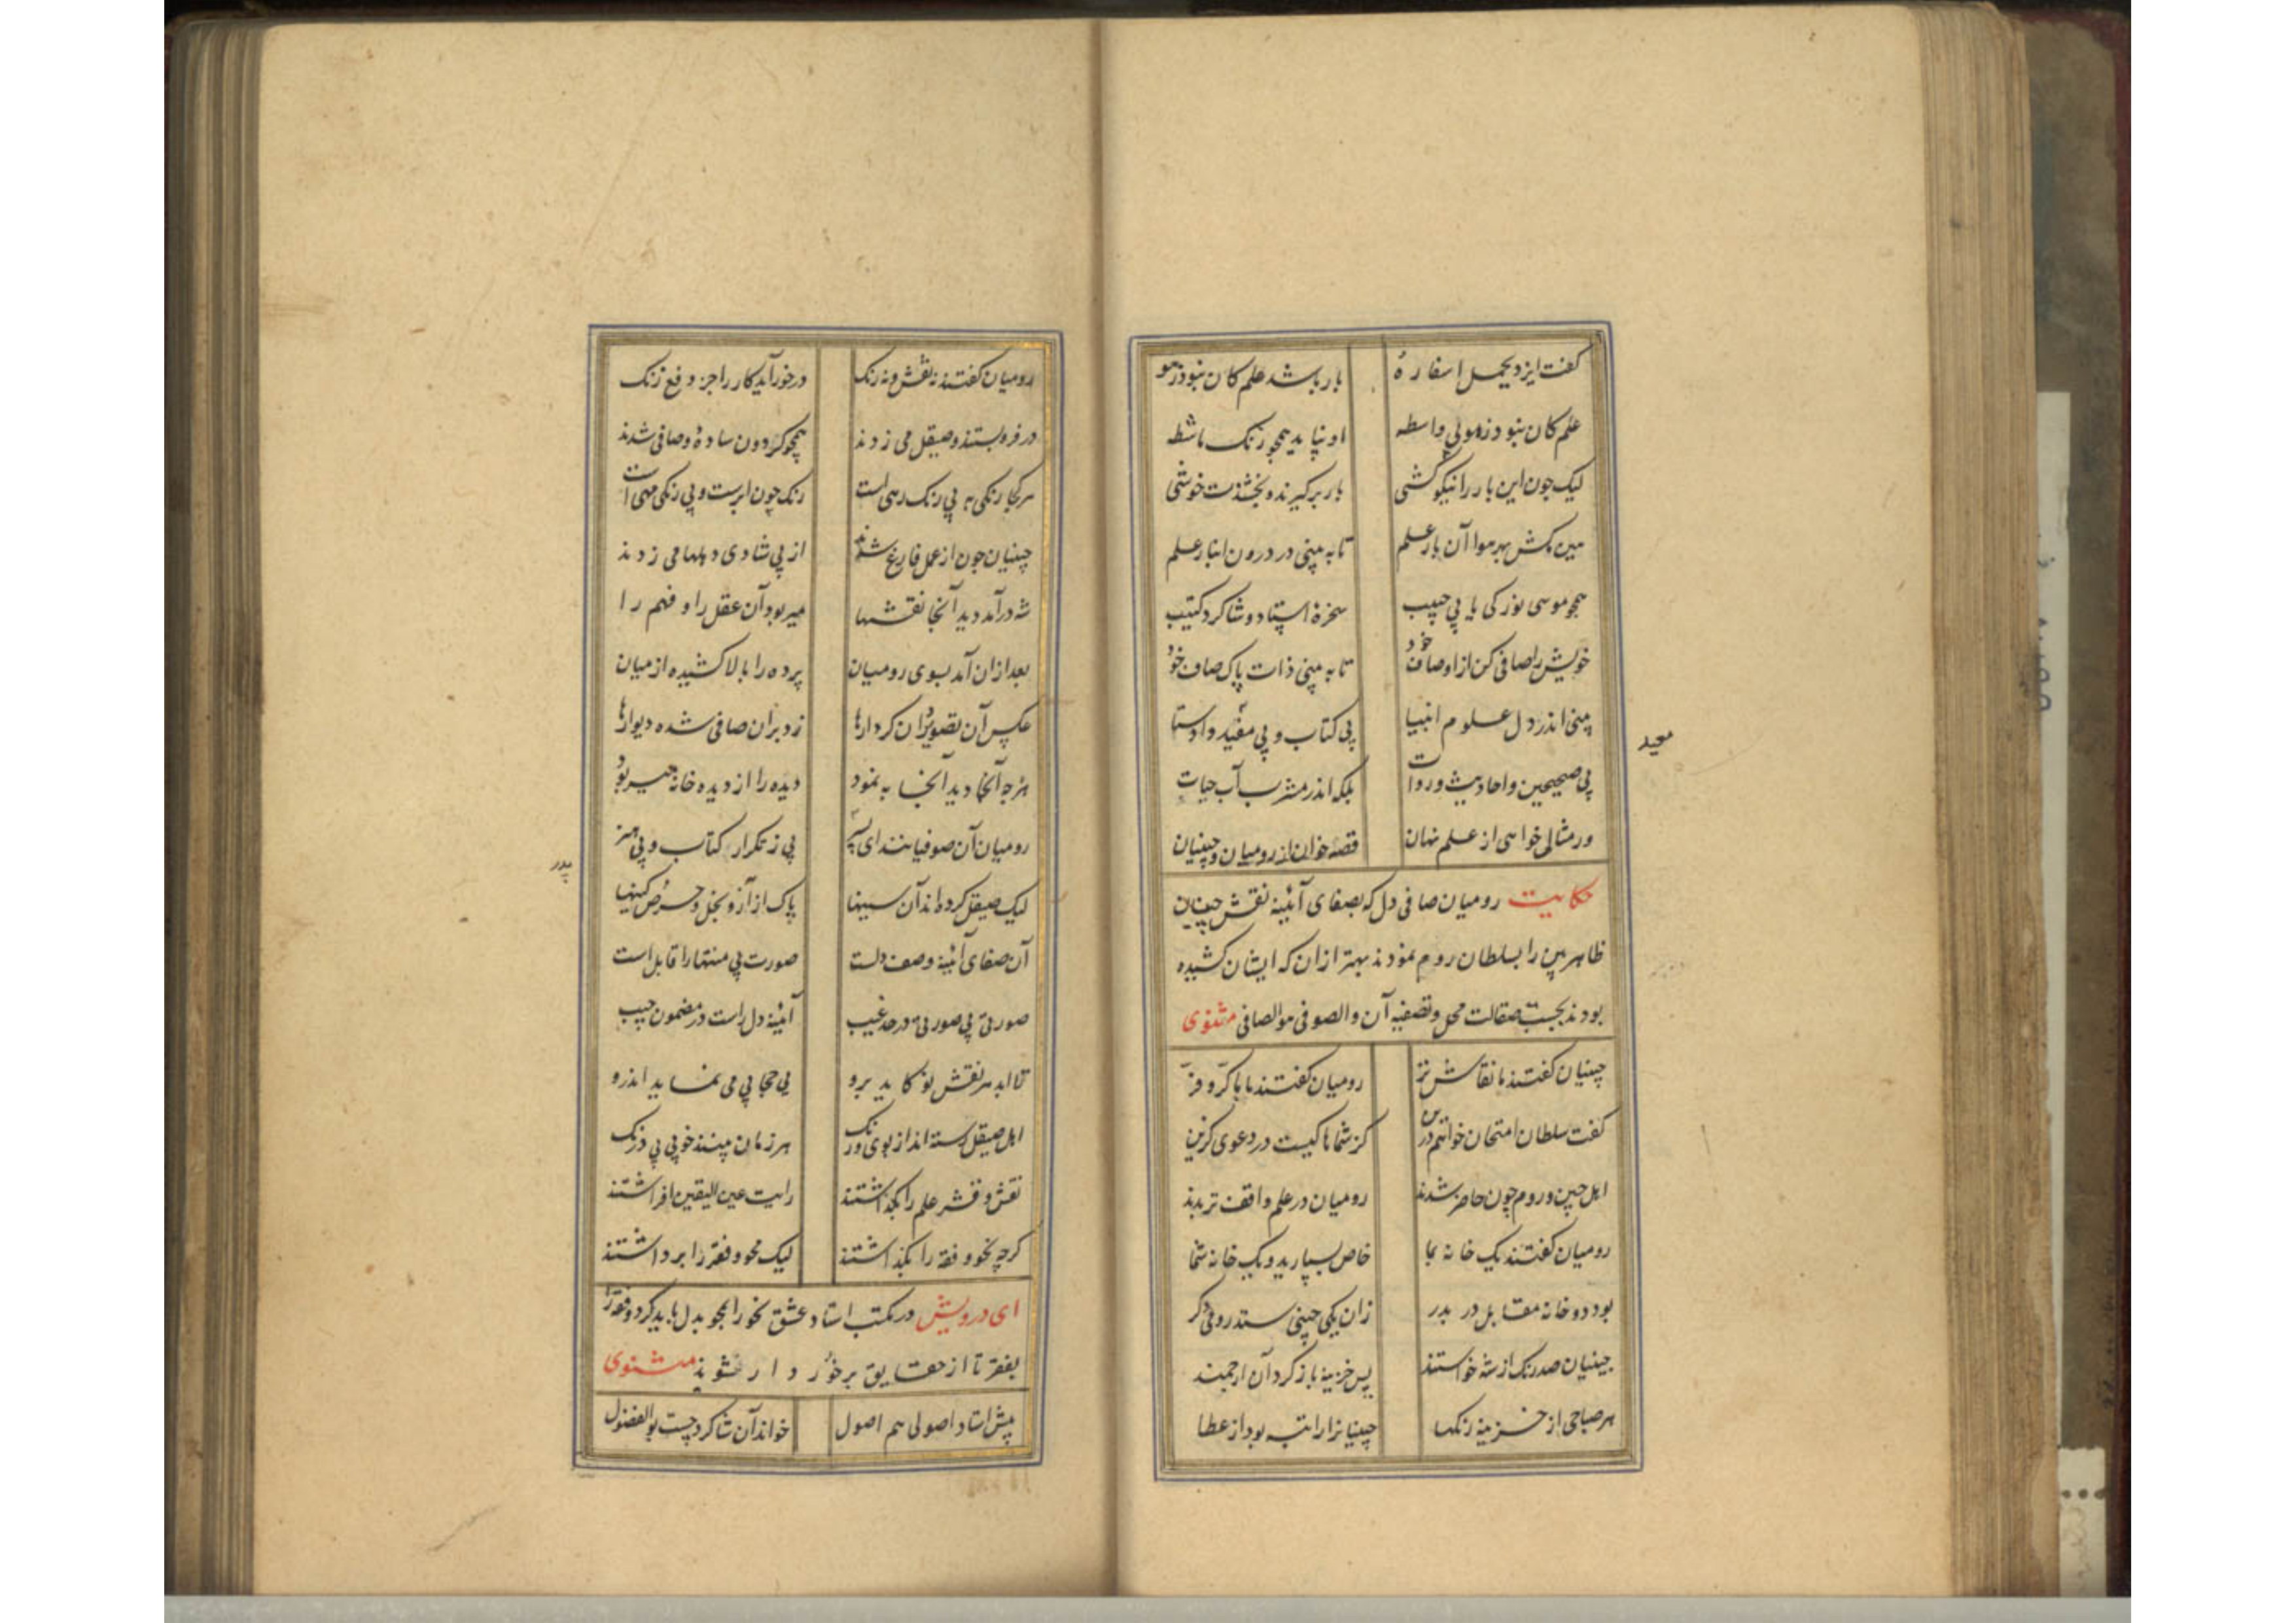 کفت ایزد یحمل اسفاره بار باشد علم کان نبود ز هو
علم کان نبود ز هو بی واسطه او نپاید همچو رنک ماشطه
لیک چون این بار را نیکو کشی بار برکیرند و بخشندت خوشی
هین مکش بهر هوا آن بار علم تا به بینی در درون انبار علم
همچو موسی نور کی یابی ز جیب سخره استاد و شاکرد کتیب
خویش را صافی کن از اوصاف خود تا به بینی ذات پاک صاف خود
بینی اندر دل علوم انبیا بی کتاب و بی معید و اوستا
معید
بی صحیحین و احادیث و روات بلکه اندر مشرب آب حیات
ور مثالی خواهی از علم نهان قصه خوان از رومیان و چینیان
حکایت رومیان صافی دل که بصفای آئینه نقش چینیان
ظاهربین را بسلطان روم نمودند بهتر از ان که ایشان کشیده
بودند بحسب صقالت محل و تصفیه آن والصوفی هو الصافی مثنوی
چینیان کفتند ما نقاش تر رومیان کفتند ما با کرّ و فرّ
کفت سلطان امتحان خواهم درین کز شماها کیست در دعوی کزین
اهل چین و روم چون حاضر شدند رومیان در علم واقف تر بدند
رومیان کفتند یک خانه بما خاص بسپارید و یک خانه شما
بود دو خانه مقابل در بدر زان یکی چینی ستد رومی دکر
چینیان صد رنک از شه خواستند پس خزینه باز کرد آن ارجمند
هر صباحی از خزینه رنکها چینیانرا راتبه بود از عطا
رومیان کفتند نه نقش و نه رنک در خور آید کار را جز دفع زنک
در فرو بستند و صیقل می زدند همچو کردون ساده و صافی شدند
هر کجا رنکی به بی رنک رهی است رنک چون ابرست و بی رنکی مهی است
چینیان چون از عمل فارغ شدند از پی شادی دهلها می زدند
شه درآمد دید آنجا نقشها میربود آن عقل را و فهم را
بعد ازان آمد بسوی رومیان پرده را بالا کشیده از میان
عکس آن تصویر و آن کردارها زد بران صافی شده دیوارها
هرچه آنجا دید آنجا به نمود دیده را از دیده خانه میربود
رومیان آن صوفیانند ای پسر بی ز تکرار کتاب و بی هنر
پدر
لیک صیقل کرده اند آن سینها پاک از آز و بخل و حرص و کینها
آن صفای آئینه وصف دلست صورت بی منتها را قابل است
صورتی بی صورتی در حد غیب آئینه دل راست در مضمون جیب
تا ابد هر نقش نو کاید برو بی حجابی می نماید اندرو
اهل صیقل رسته اند از بوی و رنک هر زمان بینند خوبی بی درنک
نقش و قشر علم را بکذاشتند رایت عین الیقین افراشتند
کرچه نحو و فقه را بکذاشتند لیک محو و فقر را برداشتند
ای درویش در مکتب استاد عشق نحو را بمحو بدل باید کرد و فقه را
بفقر تا از حقایق برخوردار شوید مثنوی
پیش استاد اصولی هم اصول خواند آن شاکرد چست بوالفضول